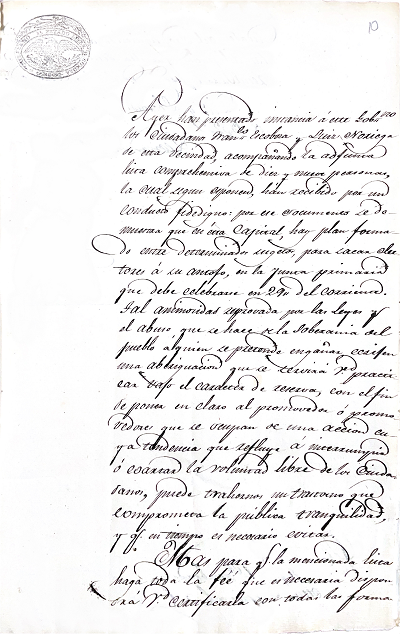 10
Ayer han presentado instancia á este Gobno
los Ciudadanos Franco Escobosa y Luis Noriega
de esta vecindad, acompañando la adjunta
lista comprehensiva de diez y nueve personas,
la cual segun exponen, han recibido por un
conducto fidedigno: por ese documento se de-
muestra que en esta Capital, hay plan forma-
do entre determinados sugetos, para sacar elec-
tores á su antojo, en la junta primaria
que debe celebrarse en 29 del corriente.
Tal animosidad reprovada por las Leyes y
el abuso que se hace de la Soberania del
pueblo a quien se pretende engañar, exijen
una averiguacion que se servirá Vd practi-
car bajo el caracter de reserva, con el fin
de poner en claro al promovedor ó promo-
vedores que se ocupan de una accion cu-
ya tendencia que refluye á interrumpir
ó coartar la voluntad libre de los Ciuda-
danos, puede trahernos un trastorno que
comprometa la pública tranquilidad,
y qe en tiempo es necesario evitar.
Mas para qe la mencionada lista
haga toda la fée que es necesaria dispon-
drá Vd certificarla con todas las forma-